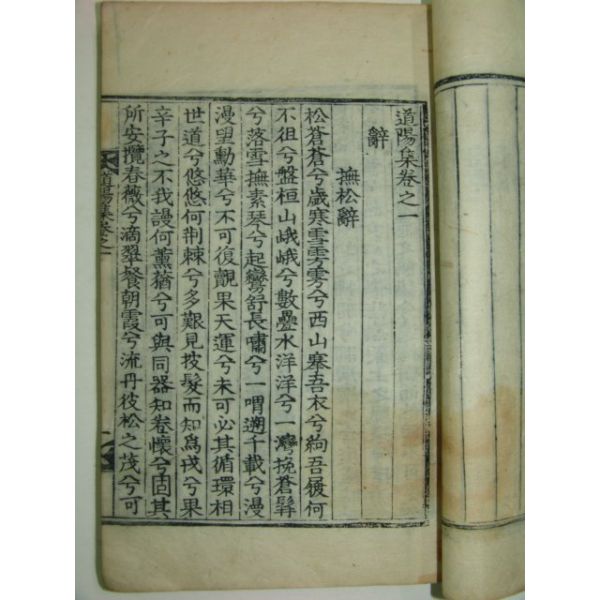 道陽集卷之一
辭
撫松辭
松蒼蒼兮歲寒雪雰雰兮西山搴吾衣兮絇吾屨何
不徂兮盤桓山峨峨兮數疊水洋洋兮一灣挽蒼髥
兮落雪撫素琴兮起彎舒長嘯兮一喟遡千載兮漫
漫望勳華兮不可復覿果天運兮未可必其循環相
世道兮悠悠何荆棘兮多艱見披髮而知爲戎兮果
辛子之不我謾何薰蕕兮可與同器知卷懷兮固其
所安攬春薇兮滴翠餐朝霞兮流丹彼松之茂兮可
道陽集卷之一